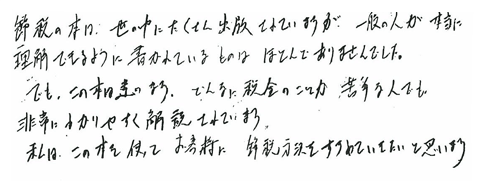 節税の本は、世の中にたくさん出版されていますが 一般の人が 本当に
理解できるように 書かれているものは ほとんどありませんでした。
でも、この本は違います。どんなに税金のことが 苦手な人でも
非常にわかりやすく解説されています。
私は、この本を使って お客様に 節税方法をすすめていきたいと思います